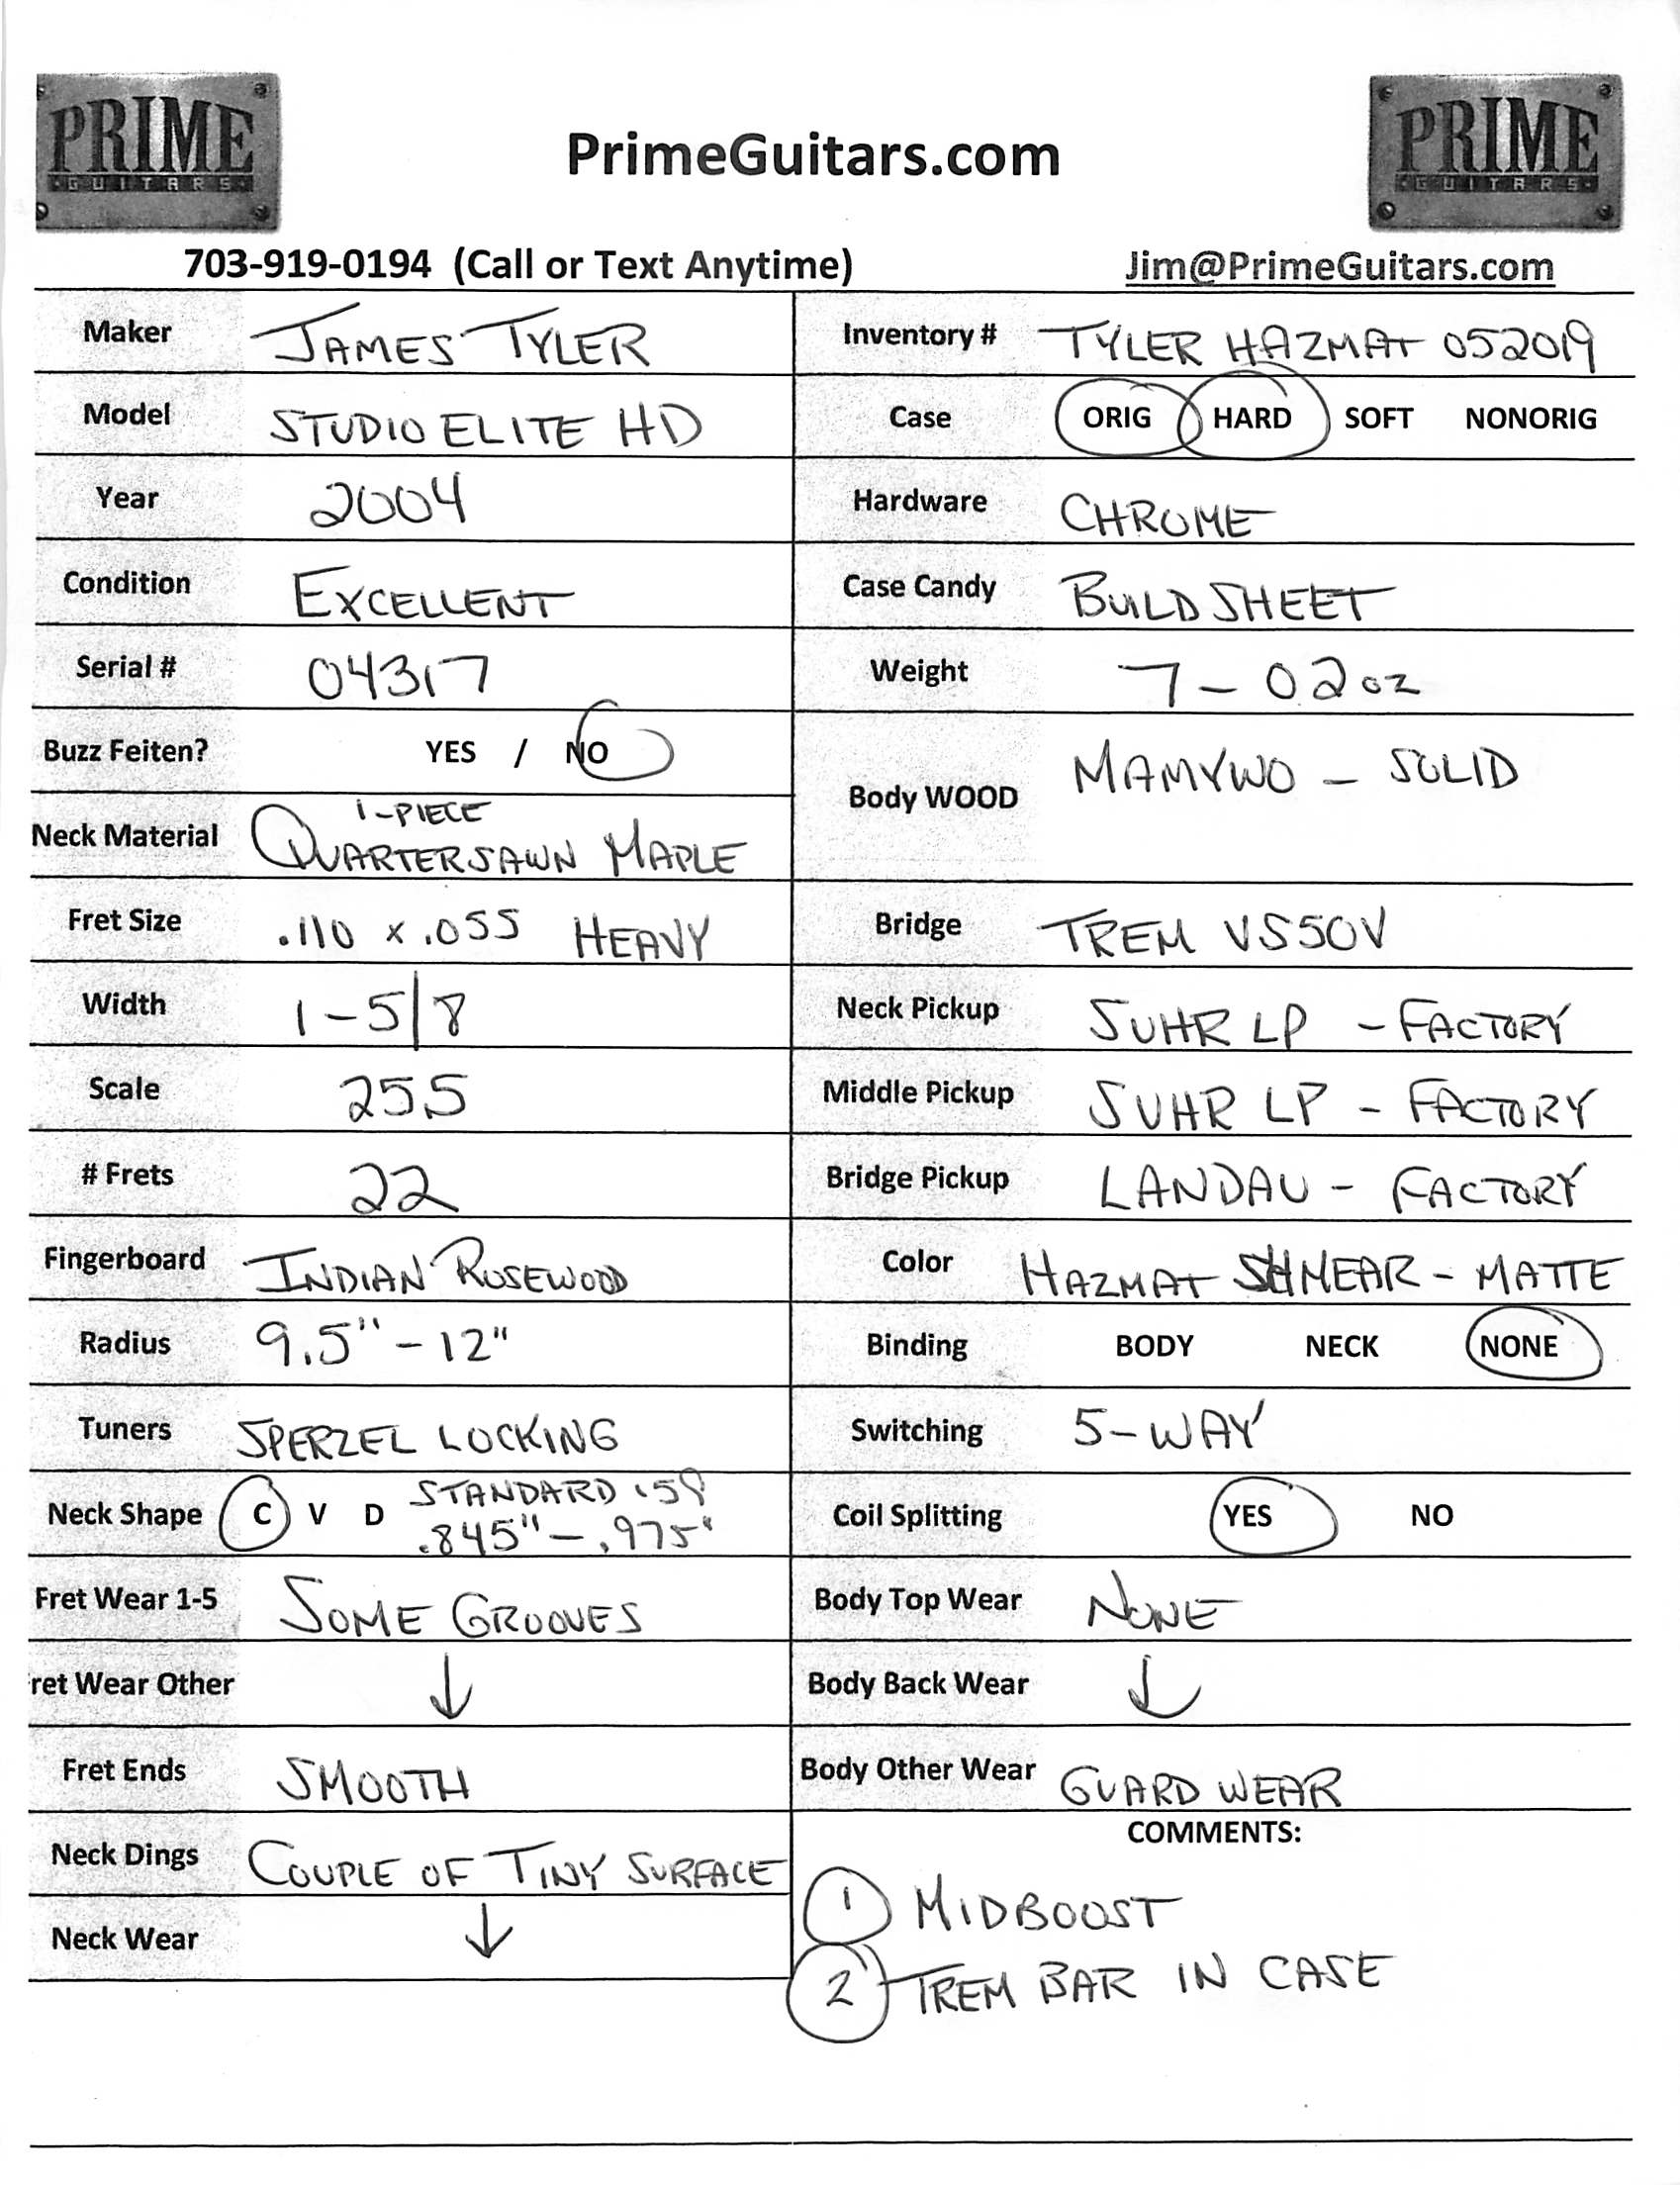 PRIME
GUITARS
PrimeGuitars.com
PRIME
GUITARS
703-919-0194 (Call or Text Anytime)
Jim@PrimeGuitars.com
Maker JAMES TYLER
Inventory # TYLER HAZMAT 052019
Model STUDIO ELITE HD
Case ORIG HARD SOFT NONORIG
Year 2004
Hardware CHROME
Condition EXCELLENT
Case Candy BUILD SHEET
Serial # 04317
Weight 7-02oz
Buzz Feiten? YES / NO
Body WOOD MAMYWO - SOLID
Neck Material 1-PIECE
QUARTERSAWN MAPLE
Fret Size .110 x .055 HEAVY
Bridge TREM VS50V
Width 1-5/8
Neck Pickup SUHR LP - FACTORY
Scale 25.5
Middle Pickup SUHR LP - FACTORY
# Frets 22
Bridge Pickup LANDAU - FACTORY
Fingerboard INDIAN ROSEWOOD
Color HAZMAT SHMEAR - MATTE
Radius 9.5" - 12"
Binding BODY NECK NONE
Tuners SPERZEL LOCKING
Switching 5-WAY
Neck Shape C V D STANDARD '59
.845" - .975"
Coil Splitting YES NO
Fret Wear 1-5 SOME GROOVES
Body Top Wear NONE
ret Wear Other ↓
Body Back Wear ↓
Fret Ends SMOOTH
Body Other Wear GUARD WEAR
Neck Dings COUPLE OF TINY SURFACE
Neck Wear ↓
COMMENTS:
1 MIDBOOST
2 TREM BAR IN CASE